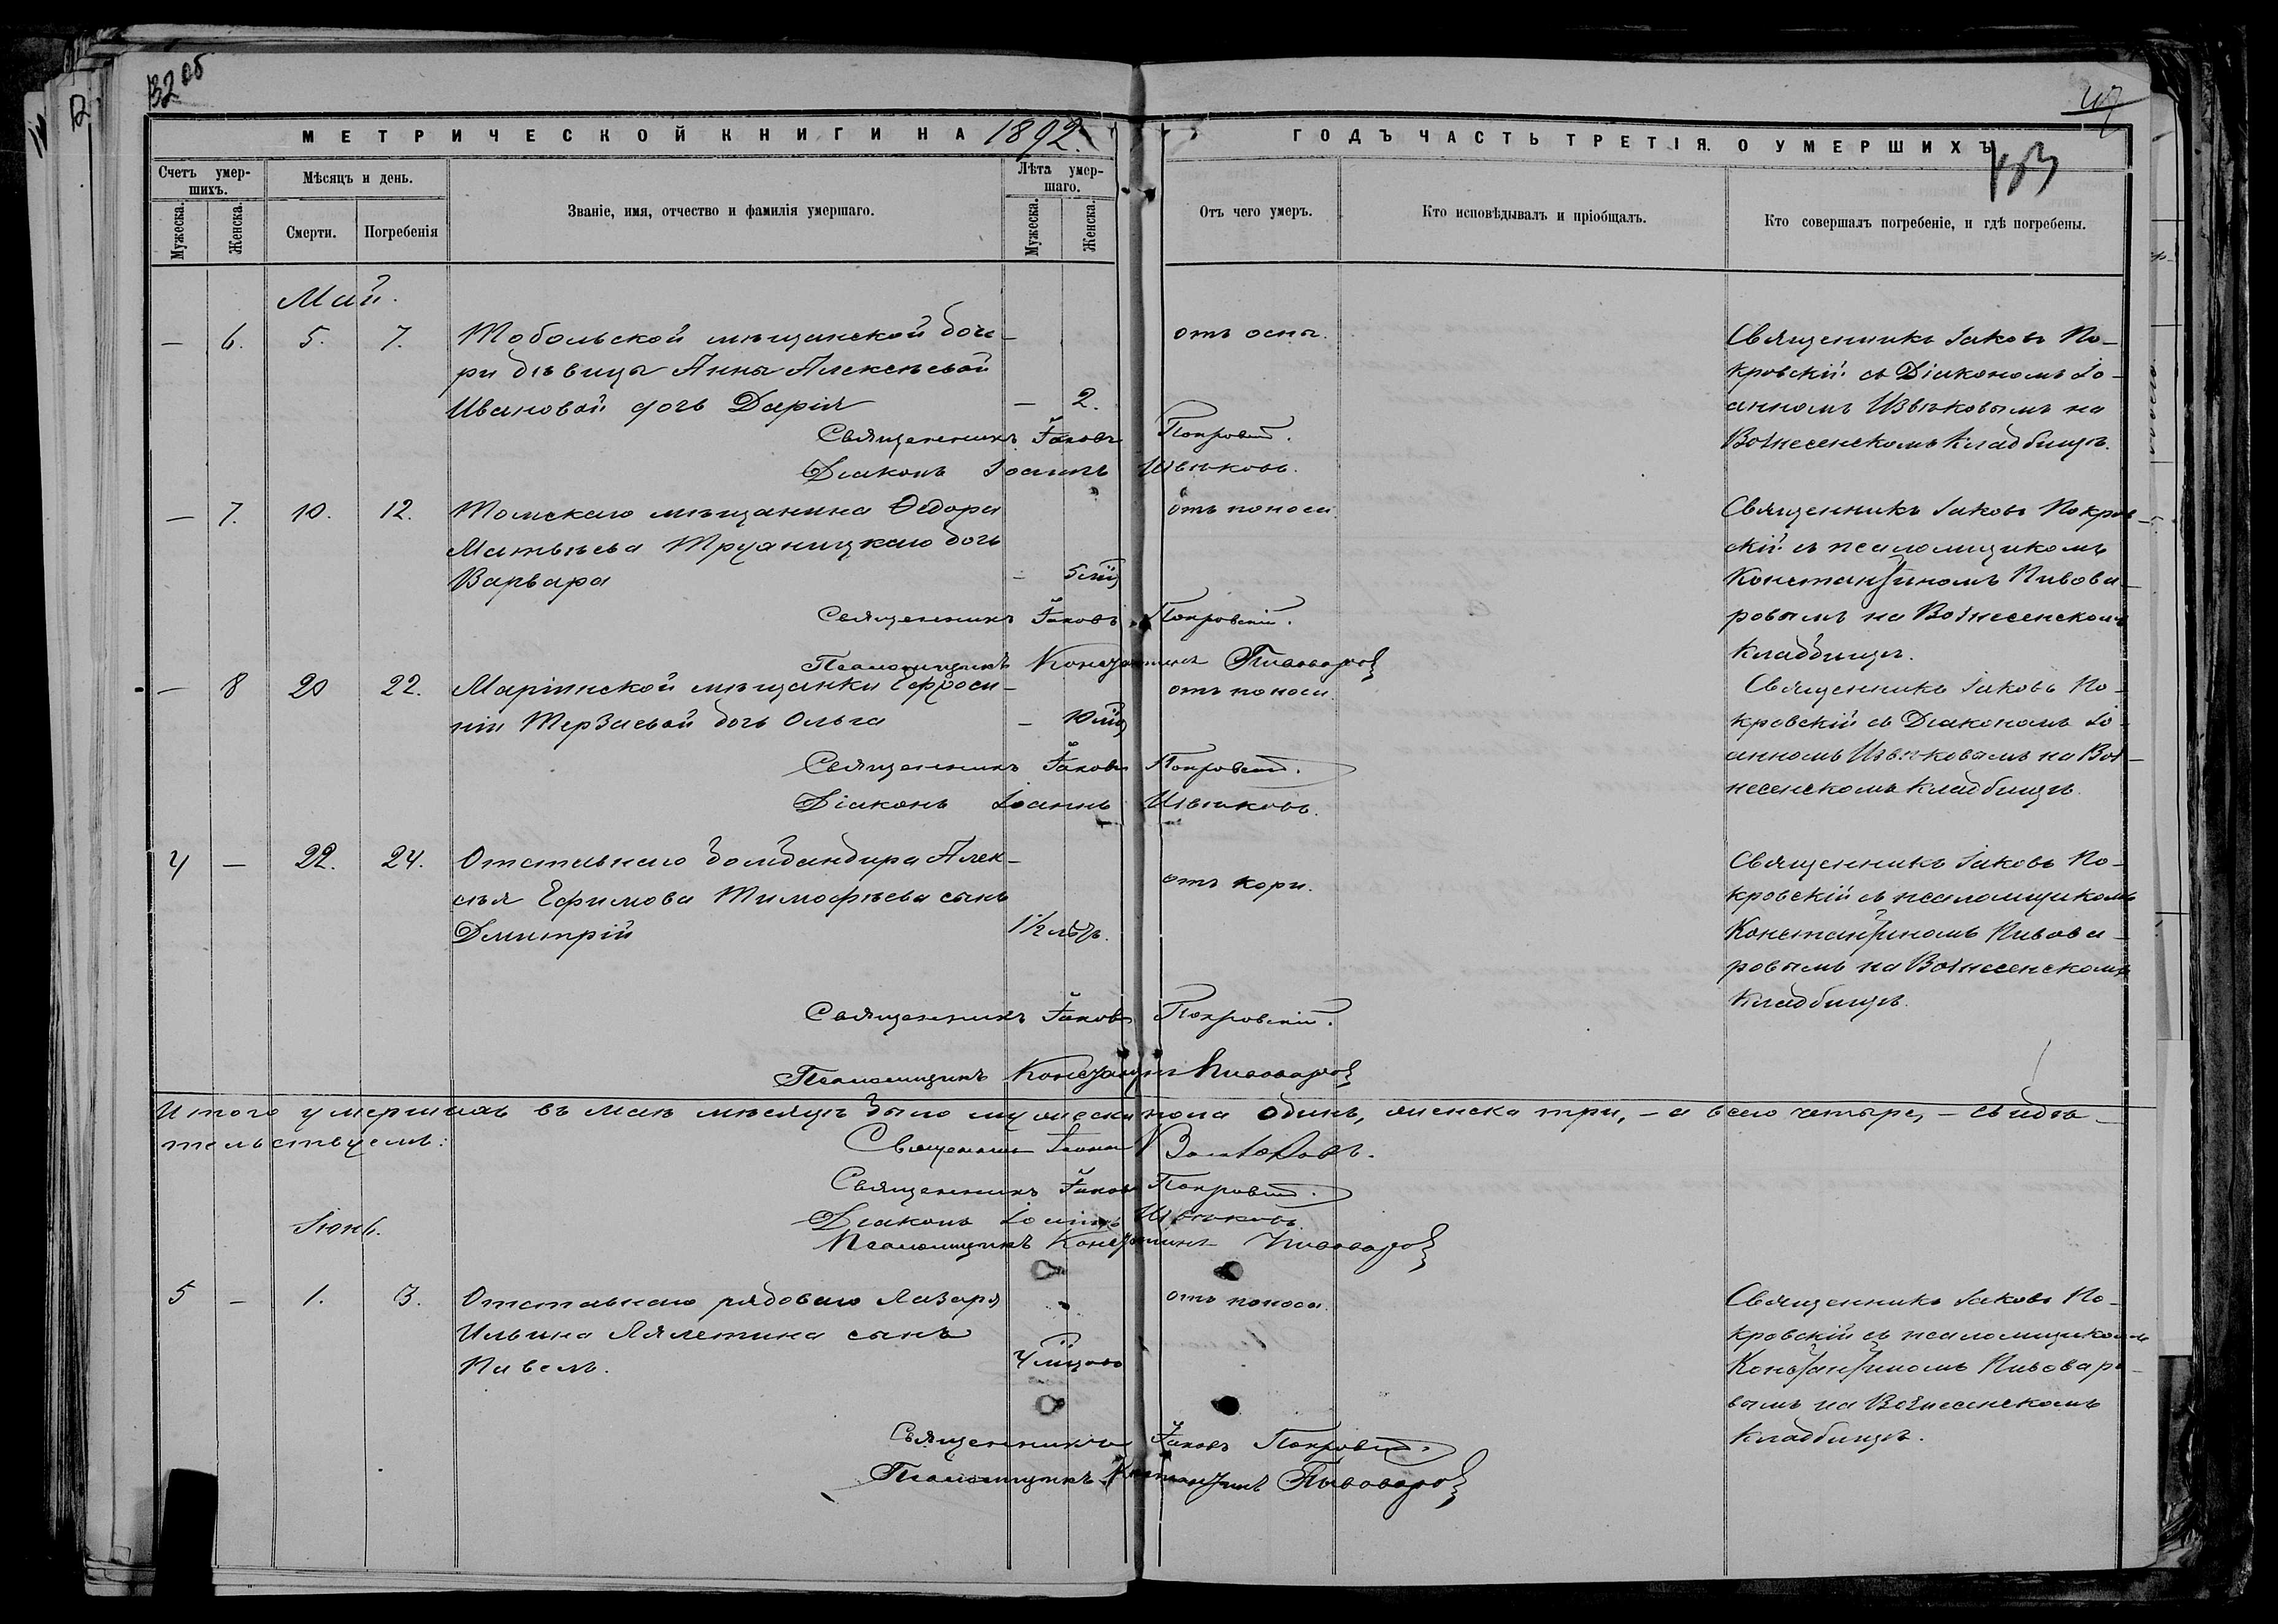 132 об
МЕТРИЧЕСКОЙ КНИГИ НА 1892.
ГОДЪ ЧАСТЬ ТРЕТІЯ. О УМЕРШИХЪ
Счетъ умер-
шихъ.
Мѣсяцъ и день.
Званіе, имя, отчество и фамилія умершаго.
Лѣта умер-
шаго.
Мужеска.
Женска.
Смерти.
Погребенія
Мужеска.
Женска.
Отъ чего умеръ.
Кто исповѣдывалъ и пріобщалъ.
Кто совершалъ погребеніе, и гдѣ погребены.
Май.
— 6. 5. 7. Тобольской мѣщанской доче-
ри дѣвицы Анны Алексѣевой
Ивановой дочь Дарія — 2.
отъ оспы.
Священникъ Іаковъ По-
кровскій съ Діакономъ Іо-
анномъ Извѣковымъ на
Вознесенскомъ кладбищѣ.
Священникъ Іаковъ Покровскій.
Діаконъ Іоаннъ Извѣковъ.
— 7. 10. 12. Томскаго мѣщанина Ѳедора
Матвѣева дочь
Варвара —
отъ поноса.
Священникъ Іаковъ Покров-
скій съ псаломщикомъ
Константиномъ Пивова-
ровымъ на Вознесенскомъ
кладбищѣ.
Священникъ Іаковъ Покровскій.
Псаломщикъ Константинъ Пивоваровъ
— 8 20 22. Маріинской мѣщанки Ефроси-
ніи Терзаевой дочь Ольга —
отъ поноса.
Священникъ Іаковъ По-
кровскій съ Діакономъ Іо-
анномъ Извѣковымъ на Воз-
несенскомъ кладбищѣ.
Священникъ Іаковъ Покровскій.
Діаконъ Іоаннъ Извѣковъ.
4 — 22. 24. Отставнаго бомбандира Алек-
сѣя Ефимова Тимофѣева сынъ
Дмитрій 1½ лѣтъ.
отъ кори.
Священникъ Іаковъ По-
кровскій съ псаломщикомъ
Константиномъ Пивова-
ровымъ на Вознесенскомъ
кладбищѣ.
Священникъ Іаковъ Покровскій.
Псаломщикъ Константинъ Пивоваровъ
Итого умершихъ въ маѣ мѣсяцѣ было мужеска пола одинъ, женска три, — а всего четыре, — свидѣ-
тельствуемъ:
Священникъ
Священникъ Іаковъ Покровскій.
Діаконъ Іоаннъ Извѣковъ.
Псаломщикъ Константинъ Пивоваровъ
Іюнь.
5 — 1. 3. Отставнаго рядоваго Лазаря
Ильина Лялетина сынъ
Павелъ. 4 мѣцовъ
отъ поноса.
Священникъ Іаковъ По-
кровскій съ псаломщикомъ
Константиномъ Пивоваро-
вымъ на Вознесенскомъ
кладбищѣ.
Священникъ Іаковъ Покровскій.
Псаломщикъ Константинъ Пивоваровъ